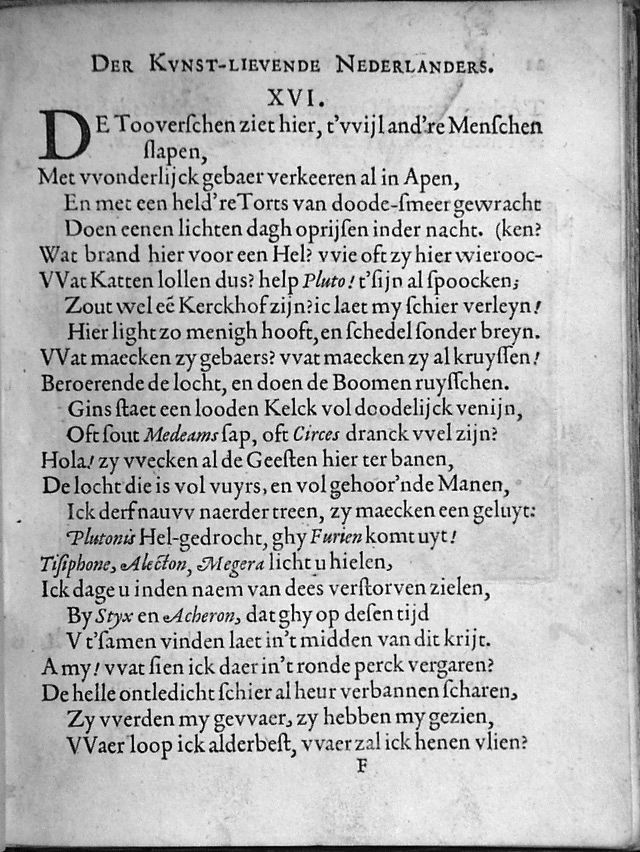 DER KVNST-LIEVENDE NEDERLANDERS.
XVI.
DE Tooverſchen ziet hier, t'vvijl and're Menſchen
ſlapen,
Met vvonderlijck gebaer verkeeren al in Apen,
En met een held're Torts van doode-ſmeer gewracht
Doen eenen lichten dagh oprijſen in der nacht. (ken?
Wat brand hier voor een Hel? vvie oft zy hier wierooc-
VVat Katten lollen dus? help Pluto! t'ſijn al ſpoocken;
Zout wel eẽ Kerckhof zijn? ic laet my ſchier verleyn!
Hier light zo menigh hooft, en ſchedel ſonder breyn.
VVat maecken zy gebaers? vvat maecken zy al kruyſſen!
Beroerende de locht, en doen de Boomen ruyſſchen.
Gins ſtaet een looden Kelck vol doodelijck venijn,
Oft ſout Medeams ſap, oft Circes dranck vvel zijn?
Hola! zy vvecken al de Geeſten hier ter banen,
De locht die is vol vuyrs, en vol gehoor'nde Manen,
Ick derf nauvv naerder treen, zy maecken een geluyt:
Plutonis Hel-gedrocht, ghy Furien komt uyt!
Tiſiphone, Alecton, Megera licht u hielen,
Ick dage u inden naem van dees verſtorven zielen,
By Styx en Acheron, dat ghy op deſen tijd
V t'ſamen vinden laet in't midden van dit krijt.
A my! vvat ſien ick daer in't ronde perck vergaren?
De helle ontledicht ſchier al heur verbannen ſcharen,
Zy vverden my gevvaer, zy hebben my gezien,
VVaer loop ick alderbeſt, vvaer zal ick henen vlien?
F